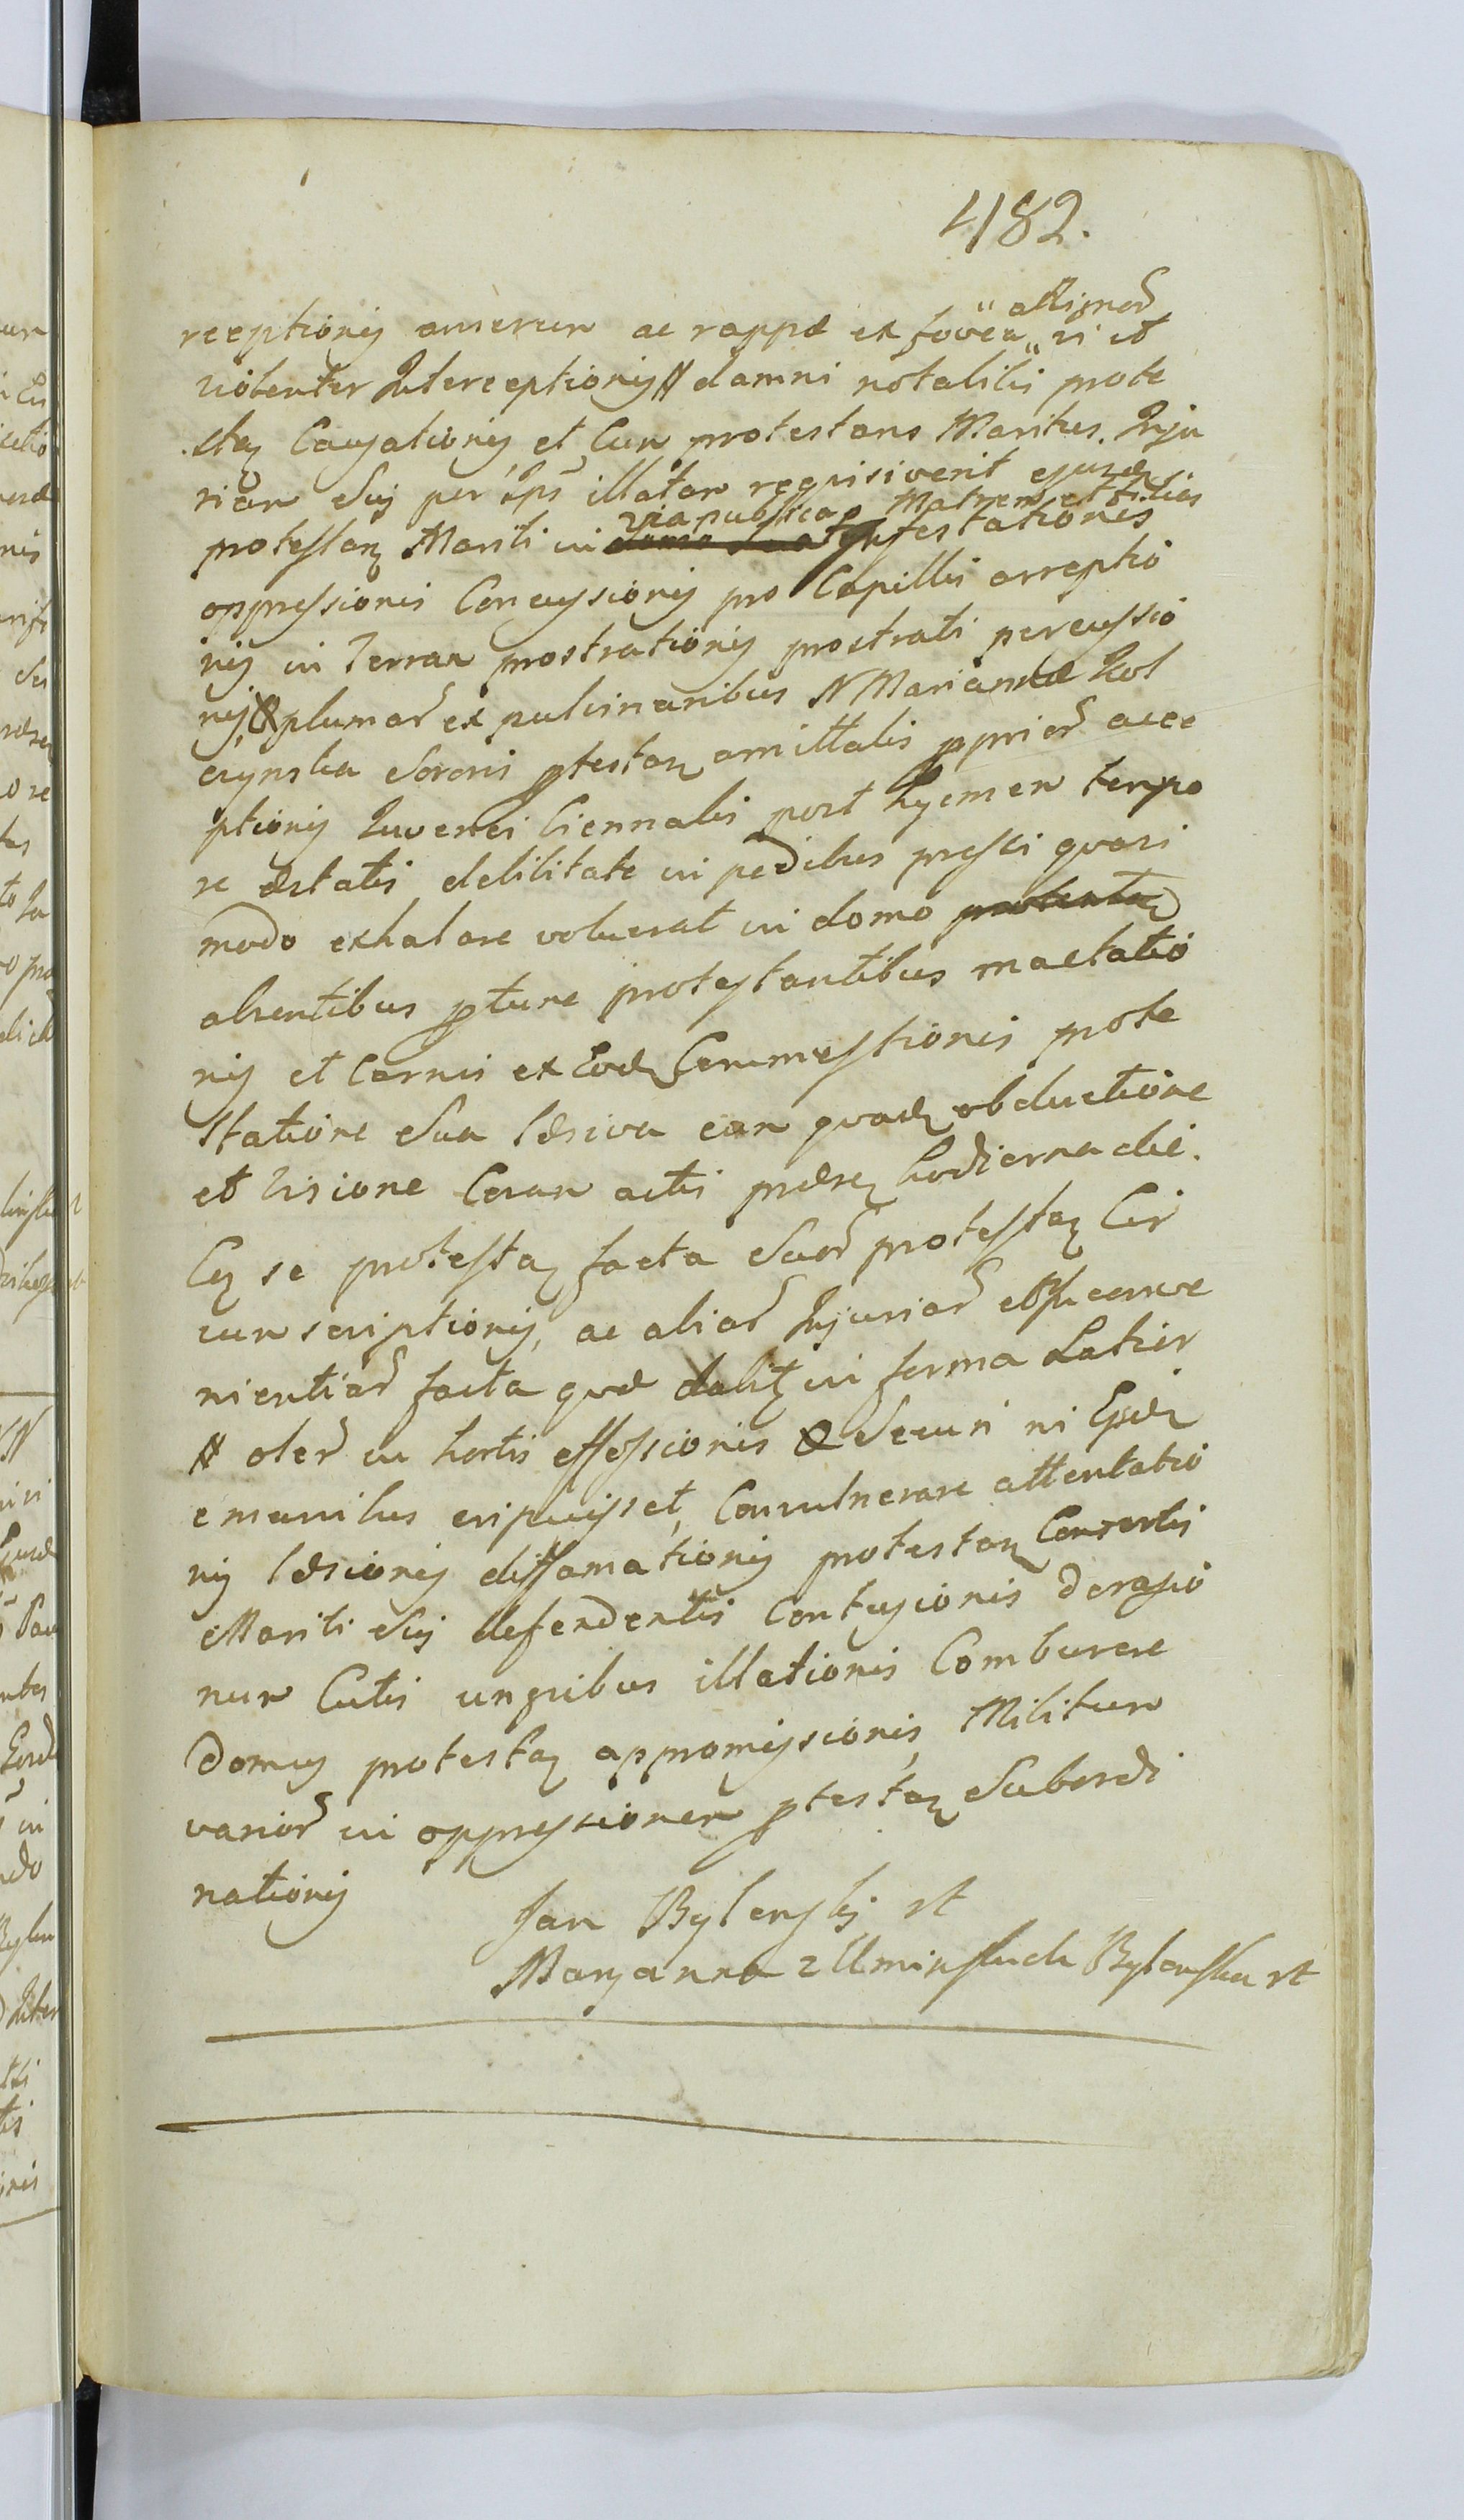 482.
" altignor
receptionis anserum ac rappæ ex fovea „ vi et
violenter Interceptionis # damni notabilis prote
stan Causationis et Cum protestans Maritus Inju
riam Sui per Ips illatam requisiverit ejusdem
via publica p Matrem et filias
protestan Mariti in Infestationis
oppressionis Concussionis pro Capillis arreptio
nis in terram prostrationis prostrati percussio
nis, & plumar ex pulvinaribus N Mariannæ
Sororis ptestan amittalis pprior acce
ptionis Juvenci biennalis post hyemem tempo
re æstatis debilitate in pedibus pressi quasi
modo exhalare voluerat in domo
absentibus ptunc protestantibus mactatio
nis et Carnis ex Eod Commestionis prote
statione Sua læsiva cum quadem obductione
et visione Coram actis præsen hodierna die.
Cuj se protestan facta Suar protestan Cir
cumscriptionis, ac aliar Injuriar et Inconve
nientiar facta quæ dabitur in forma Latior
# oler in hortis effossionis & Securi ni Eisdem
e manibus eripuisset, Convulnerare attentatio
nis læsionis diffamationis protestan Consortis
Mariti Sui defendentis Contusionis derasio
num Cutis unguibus illationis Comburere
Domus protestan appromissionis, Militum
varior in oppressionem ptestan Subordi
nationis
Jan Bylenskj st
Maryanna z Bylenska st